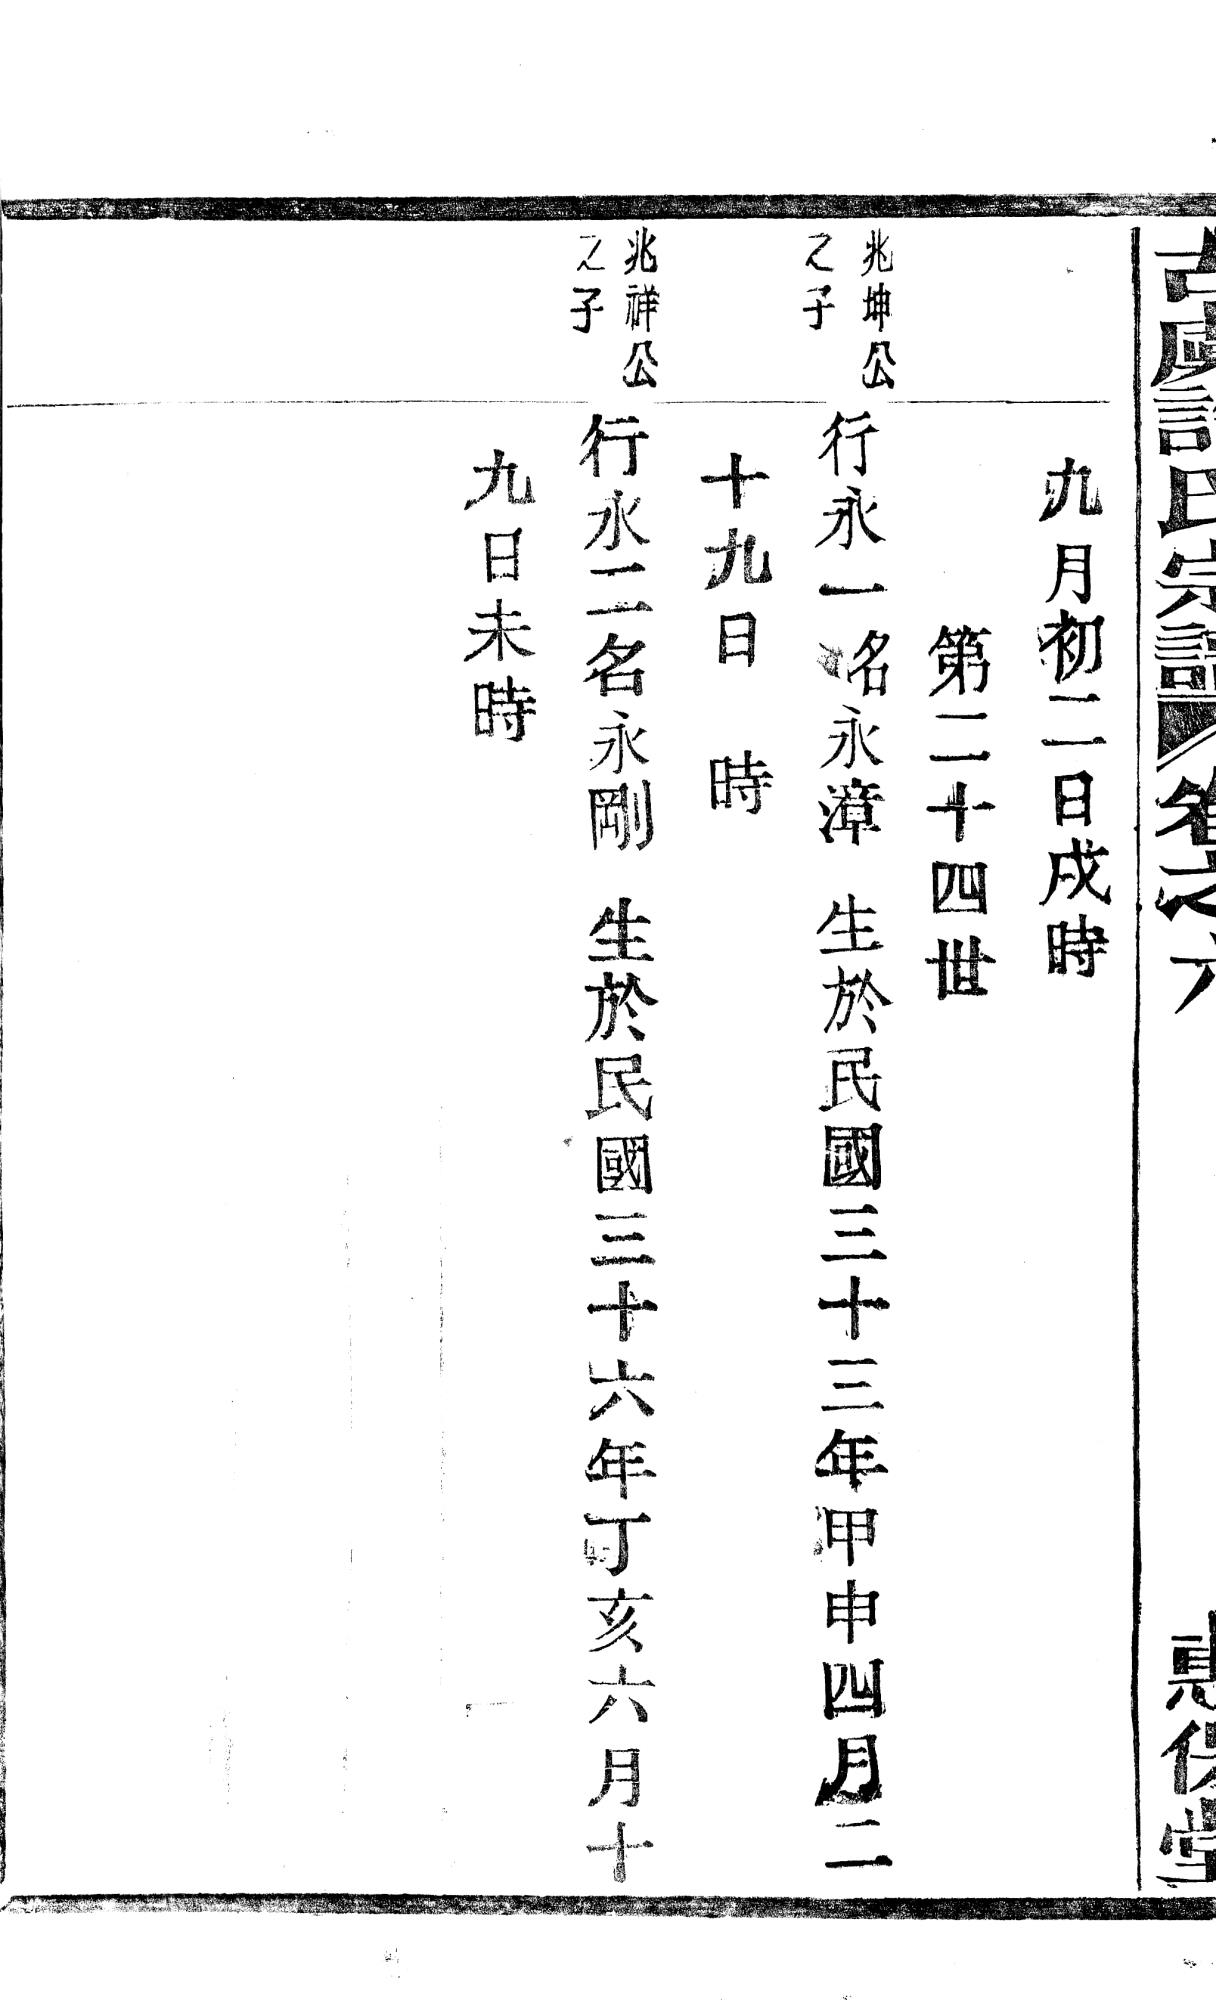 古虞許氏宗譜 卷之六 惠保堂
九月初二日戌時
第二十四世
兆坤公
之子
行永一名永漳 生於民國三十三年甲申四月二
十九日 時
兆祥公
之子
行永二名永剛 生於民國三十六年丁亥六月十
九日未時